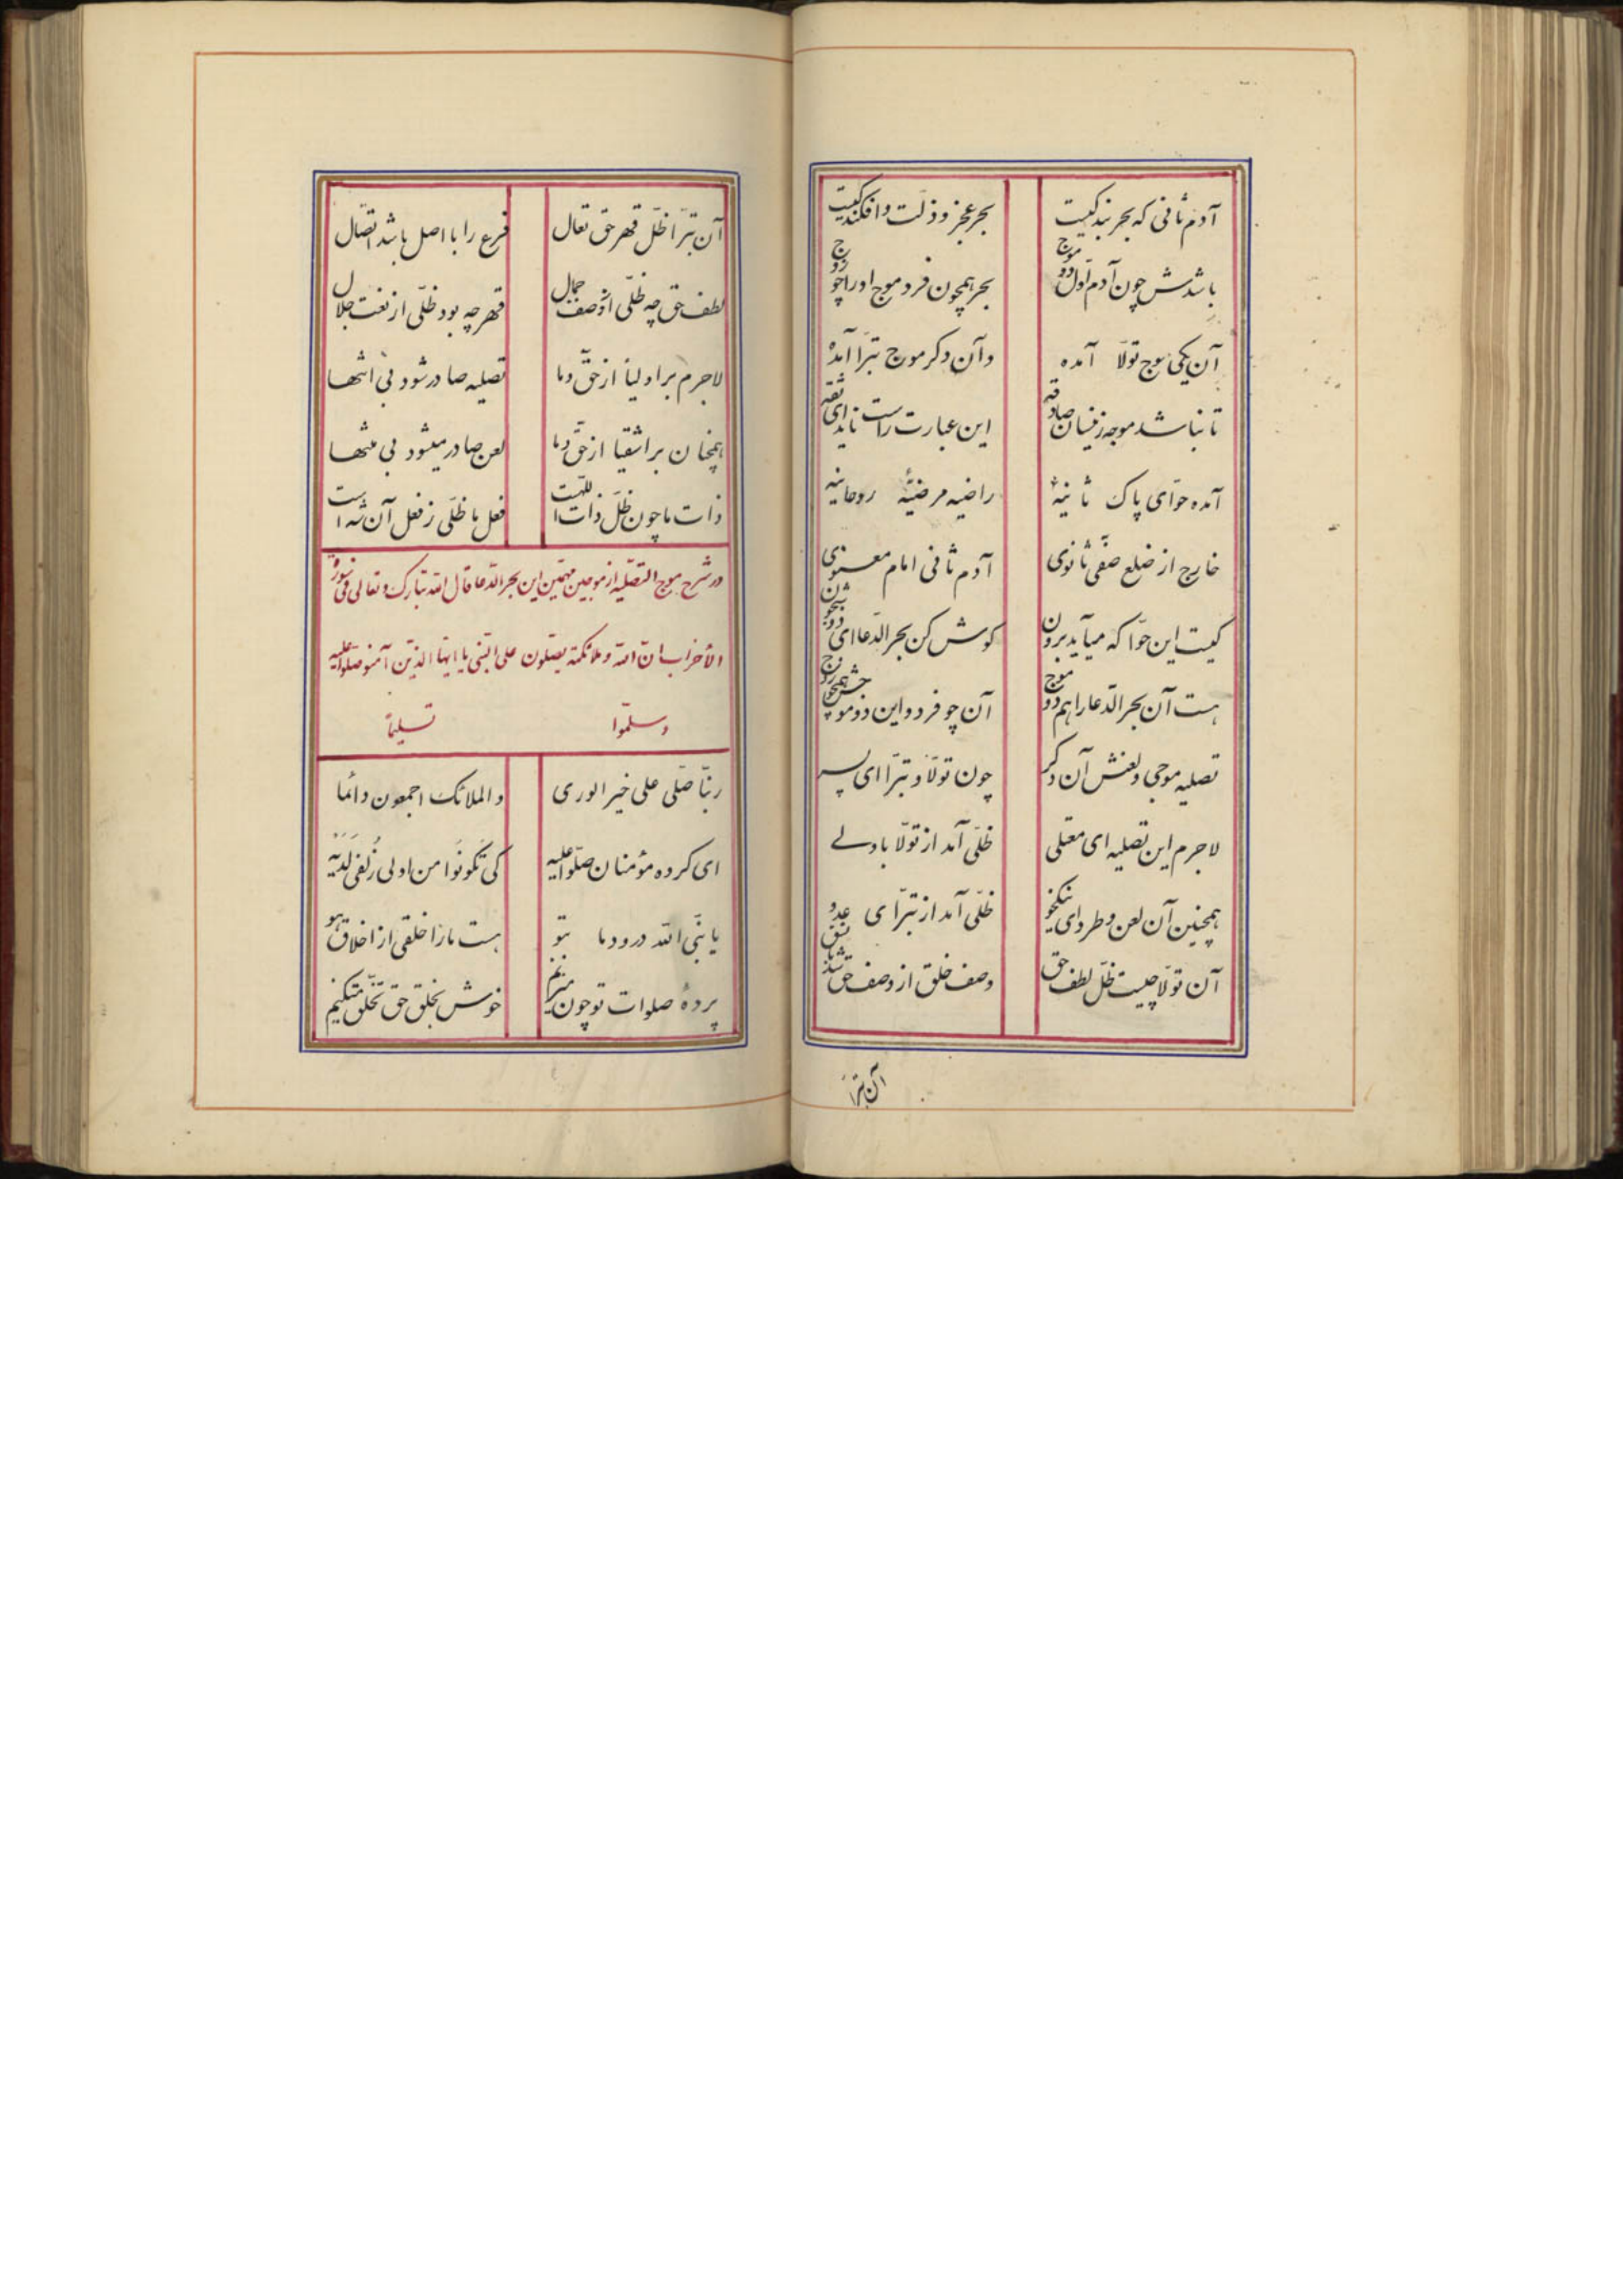 آدم ثانی که بحر بندکیست بحر عجز و ذلت و افکندکیست
باشدش چون آدم اول دو موج بحر همچون فرد موج او را چو زوج
آن یکی موج تولّا آمده وآن دکر موج تبرّا آمده
تا نباشد موجه زنیسان صادقه این عبارت راست ناید ای ثقه
آمده حوّای پاک ثانیهٔ راضیه مرضیّهٔ روحانیه
خارج از ضلع صفّی ثانوی آدم ثانی امام معنوی
کیست این حوّا که میآید برون کوش کن بحر الدّعا ای
هست آن بحر الدّعا را هم دو موج آن چو فرد و این دو موجش همچو زوج
تصلیه موجی و لعنش آن دکر چون تولّا و تبرّا ای پسر
لاجرم این تصلیه ای معتلی ظلّی آمد از تولّا با ولے
همچنین آن لعن و طرد ای نیکخو ظلّی آمد از تبرّای عدو
آن تولّا چیست ظلّ لطف حق وصف خلق از وصف حق باشد نسق
آن تبرّا
آن تبرّا ظلّ قهر حق تعال فرع را با اصل باشد اتّصال
لطف حق چه ظلّی از وصف جمال قهر چه بود ظلّی از نعت جلال
لاجرم بر اولیا از حقّ و ما تصلیه صادر شود بی انتها
همچنان بر اشقیا از حقّ و ما لعن صادر میشود بی منتها
ذات ما چون ظلّ ذات اللّهست فعل ما ظلّی ز فعل آن شه است
در شرح موج التصلیه از موجین مهمّین این بحر الدّعا قال الله تبارک و تعالی فی سورة
الأحزاب انّ الله و ملائکته یصلّون علی النّبی یا ایها الذین آمنو صلّوا علیه
و سلّموا تسلیماً
ربّنا صلّی علی خیر الوری و الملائک اجمعون دائما
ای کروه مؤمنان صلّوا علیه کی تکونوا من اولی زلفی لدیه
یا نبّی الله درود ما بتو هست ما را خلقی از اخلاق هو
پردهٔ صلوات تو چون میزنیم خوش بخلق حق تخلّق میکنیم